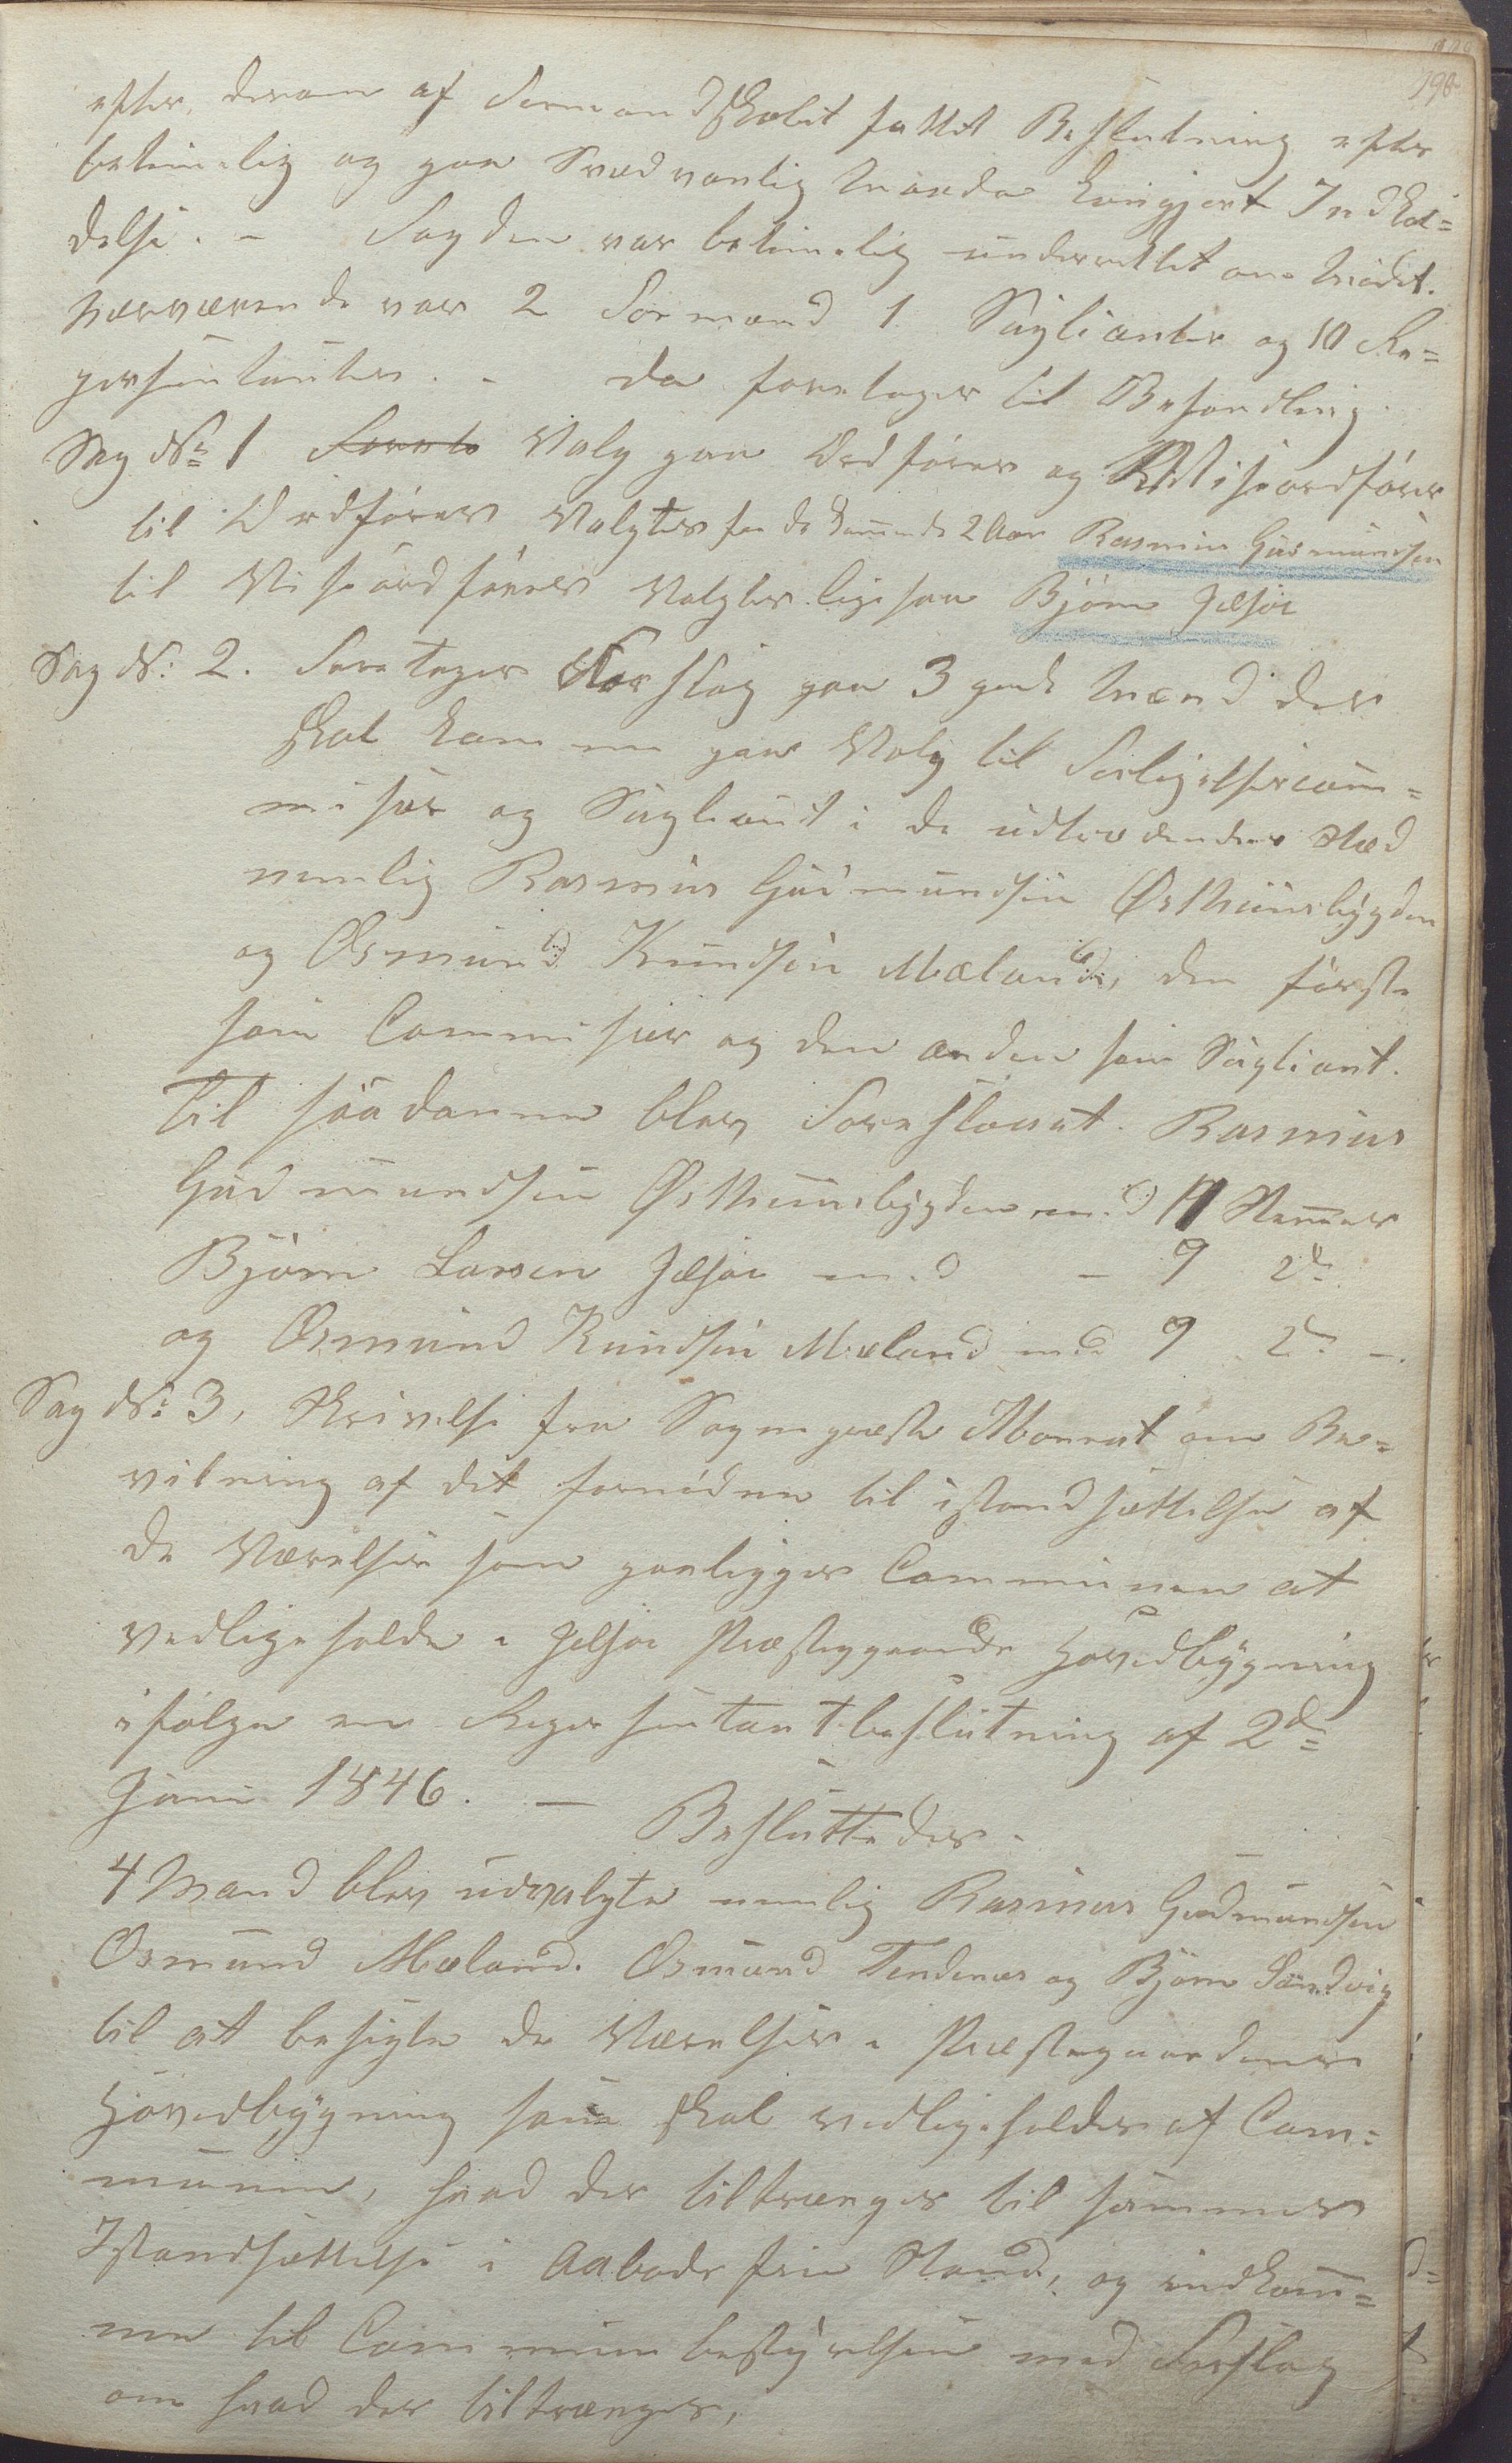 190
efter derom af Formandskabet fattet Beslutning efter
betimelig og paa Sædvanlig Maade kungjort Indkal=
delse. - Fogden var betimelig underrettet om Mødet.
Nærværende var 2 Formænd 1 Suplianter og 10 Re=
persentanter. - da foretages til Behandling.
Sag No 1 Foreto Valg paa Ordfører og Viseordfører
til Ordfører Valgtes for de kommende 2 Aar Rasmus Gudmundsen
til Viseordfører Valgtes ligesaa Bjørn Jelsøe
Sag N: 2. Foretages Forslag paa 3 gode Mænd der
skal komme paa Valg til Forligelsescom=
misær og Supliant i de udtrædendes Sted
nemlig Rasmus Gudmundsen Østhunsbygden
og Osmund Knudsen Mæland, den første
som Commisær og den anden som Supliant.
Til saadanne blev Foreslaaet Rasmus
Gudmundsen Østhunsbygden med 11 Stemmer
Bjørn Larsen Jelsøe med - 9 do
og Osmund Knudsen Mæland med 9 do -.
Sag N: 3, Skrivelse fra Sognepræst Monrat om Be=
vilning af det fornødne til istandsættelse af
de Værelser som paaligger Communen at
vedligeholde i Jelsøe Præstegaards Hovedbygning
ifølge en Repersentantbeslutning af 2de
Juni 1846. - Besluttedes.
4 Mand blev udvalgte nemlig Rasmus Gudmundsen
Osmund Mæland. Osmund Tendenes og Bjørn Sandvig
til at besigte de Værelser i Præstegaardens
Hovedbygning som skal vedligeholdes af Com=
munen, hvad der tiltrænges til sammes
Istandsættelse i Aabodsfrie Stand, og indkom=
me til Communebestyrelsen med Forslag
om hvad der tiltrænges,